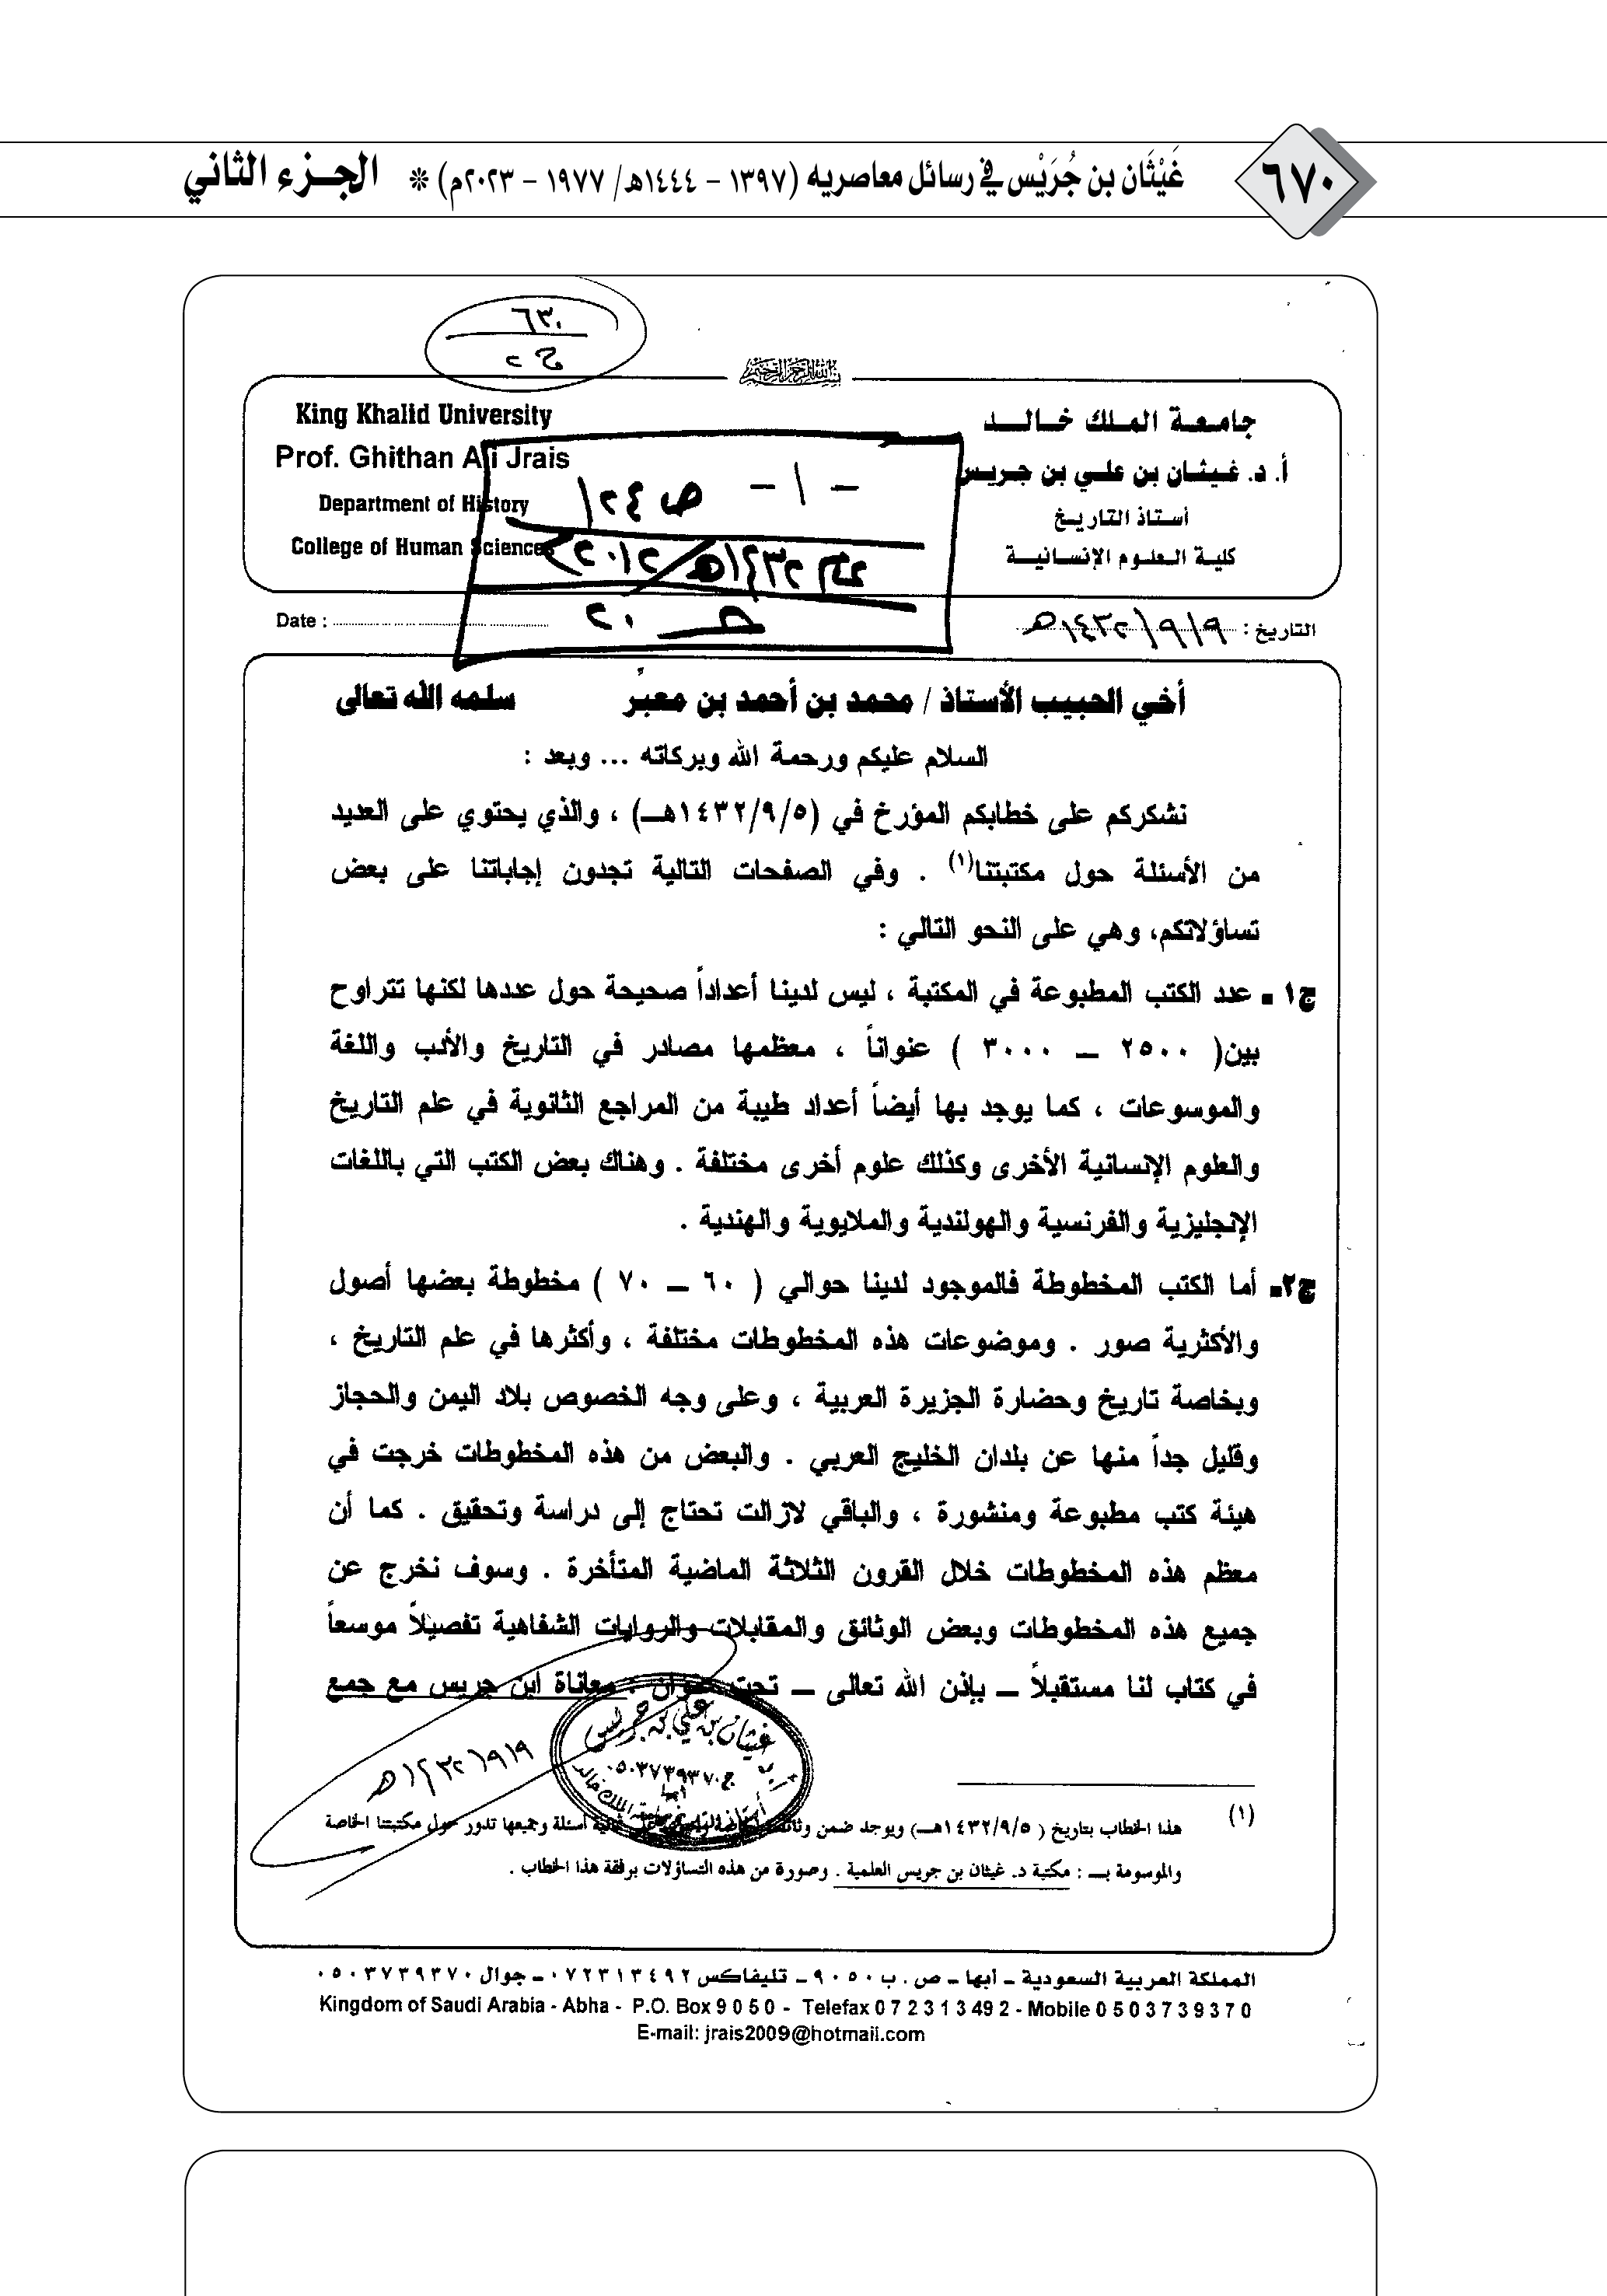 ٦٧٠
غَيْثَان بن جُرَيْس في رسائل معاصريه (١٣٩٧ – ١٤٤٤هـ/ ١٩٧٧ – ٢٠٢٣م) * الجزء الثاني
٦٣٠
بسم الله الرحمن الرحيم
جامعة الملك خالد
أ. د. غيثان بن علي بن جريس
أستاذ التاريخ
كلية العلوم الإنسانية
King Khalid University
Prof. Ghithan Ali Jrais
Department of History
College of Human Sciences
- ١ -
التاريخ : ١٤٣٢/٩/٩هـ
Date :
أخي الحبيب الأستاذ / محمد بن أحمد بن معبّر سلمه الله تعالى
السلام عليكم ورحمة الله وبركاته ... وبعد :
نشكركم على خطابكم المؤرخ في (١٤٣٢/٩/٥هـ) ، والذي يحتوي على العديد
من الأسئلة حول مكتبتنا(١) . وفي الصفحات التالية تجدون إجاباتنا على بعض
تساؤلاتكم، وهي على النحو التالي :
ج١ ـ عدد الكتب المطبوعة في المكتبة ، ليس لدينا أعداداً صحيحة حول عددها لكنها تتراوح
بين( ٢٥٠٠ ــ ٣٠٠٠ ) عنواناً ، معظمها مصادر في التاريخ والأدب واللغة
والموسوعات ، كما يوجد بها أيضاً أعداد طيبة من المراجع الثانوية في علم التاريخ
والعلوم الإنسانية الأخرى وكذلك علوم أخرى مختلفة . وهناك بعض الكتب التي باللغات
الإنجليزية والفرنسية والهولندية والملايوية والهندية .
ج٢ـ أما الكتب المخطوطة فالموجود لدينا حوالي ( ٦٠ ــ ٧٠ ) مخطوطة بعضها أصول
والأكثرية صور . وموضوعات هذه المخطوطات مختلفة ، وأكثرها في علم التاريخ ،
وبخاصة تاريخ وحضارة الجزيرة العربية ، وعلى وجه الخصوص بلاد اليمن والحجاز
وقليل جداً منها عن بلدان الخليج العربي . والبعض من هذه المخطوطات خرجت في
هيئة كتب مطبوعة ومنشورة ، والباقي لازالت تحتاج إلى دراسة وتحقيق . كما أن
معظم هذه المخطوطات خلال القرون الثلاثة الماضية المتأخرة . وسوف نخرج عن
جميع هذه المخطوطات وبعض الوثائق والمقابلات والروايات الشفاهية تفصيلاً موسعاً
في كتاب لنا مستقبلاً ــ بإذن الله تعالى ــ تحت عنوان : معاناة ابن جريس مع جمع
غيثان بن علي بن جريس
ج/٠٥٠٣٧٣٩٣٧٠
أبها
أستاذ التاريخ بجامعة الملك خالد
١٤٣٢/٩/٩هـ
(١) هذا الخطاب بتاريخ ( ١٤٣٢/٩/٥هـ) ويوجد ضمن أسئلة وجميعها تدور حول مكتبتنا الخاصة
والموسومة بــ : مكتبة د. غيثان بن جريس العلمية . وصورة من هذه التساؤلات برفقة هذا الخطاب .
المملكة العربية السعودية ـ أبها ـ ص . ب ٩٠٥٠ ـ تليفاكس ٠٧٢٣١٣٤٩٢ ـ جوال ٠٥٠٣٧٣٩٣٧٠
Kingdom of Saudi Arabia - Abha - P.O. Box 9 0 5 0 - Telefax 0 7 2 3 1 3 49 2 - Mobile 0 5 0 3 7 3 9 3 7 0
E-mail: jrais2009@hotmail.com